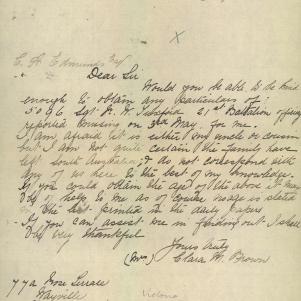 C. A. Edmunds Esq
Dear Sir
Would you be able to be kind
enough to obtain any particulars of
5096 Sgt R. W. 21st Battalion
reported missing on 3rd May. for me.
I am afraid it is either my uncle or cousin
but I am not quite certain (the family have
left South Australia) & do not correspond with
any of us here to the best of my knowledge.
If you could obtain the age of the above it may
be of help to me as of course no age is stated
in the list printed in the daily papers
If you can assist me in finding out I shall
be very thankful
Yours truly
(Mrs) Clara W. Brown
77a Rose Terrace
Wayville
Victoria